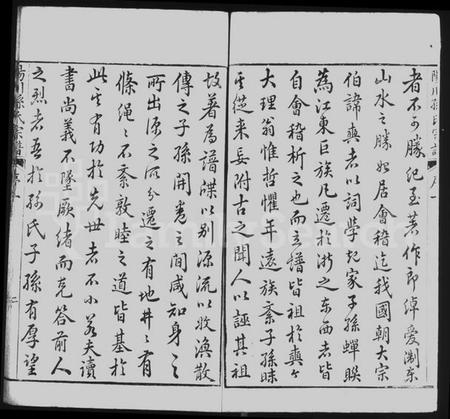 陽川孫氏宗譜 序 一
者不可勝紀至著作郎綽愛淛東
山水之勝始居會稽迄我國朝大宗
伯諱奭者以詞學起家子孫蟬聮
為江東巨族凡遷於浙之东西者皆
自會稽析之也而立譜皆祖於奭公
大理翁惟哲懼年遠族紊子孫昧
其從来妄附古之聞人以誣其祖
故著為譜牒以别源流以收渙散
傳之子孫開卷之間咸知身之
所出源之所分遷之有地井井有
條繩繩不紊敦睦之道皆基於
此其有功於先世者不小若夫讀
書尚義不墜厥绪而克答前人
之烈者吾於孫氏子孫有厚望
陽川孫氏宗譜
二